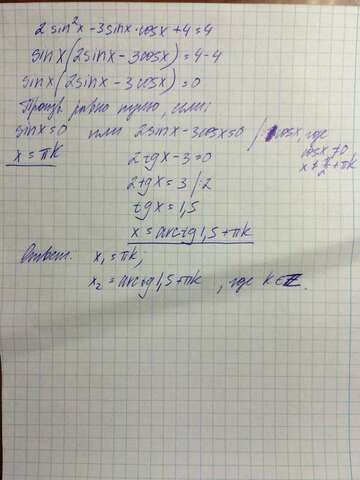 2 sin²x - 3 sinx · cosx + 4 = 4
sinx(2sinx - 3cosx) = 4-4
sinx(2sinx - 3cosx) = 0
Произв. равно нулю, если:
sinx=0 или 2sinx-3cosx=0 /: cosx, где
cosx≠0
x = πk 2tgx - 3 = 0 x≠π/2+πk
2tgx = 3 /:2
tgx = 1,5
x = arctg1,5+πk
Ответ: x₁ = πk;
x₂ = arctg1,5+πk, где k∈Z.